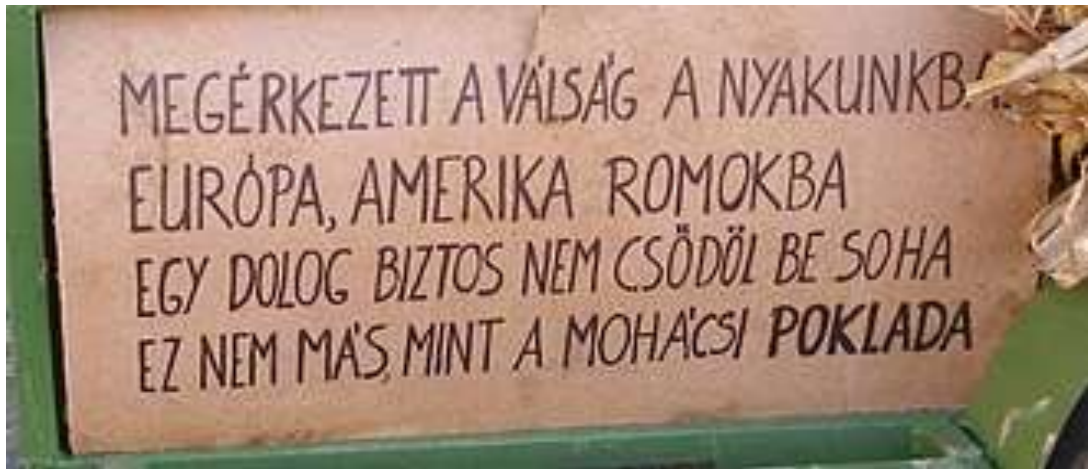 MEGÉRKEZETT A VÁLSÁG A NYAKUNKBA
EURÓPA, AMERIKA ROMOKBA
EGY DOLOG BIZTOS NEM CSŐDÖL BE SOHA
EZ NEM MÁS, MINT A MOHÁCSI POKLADA